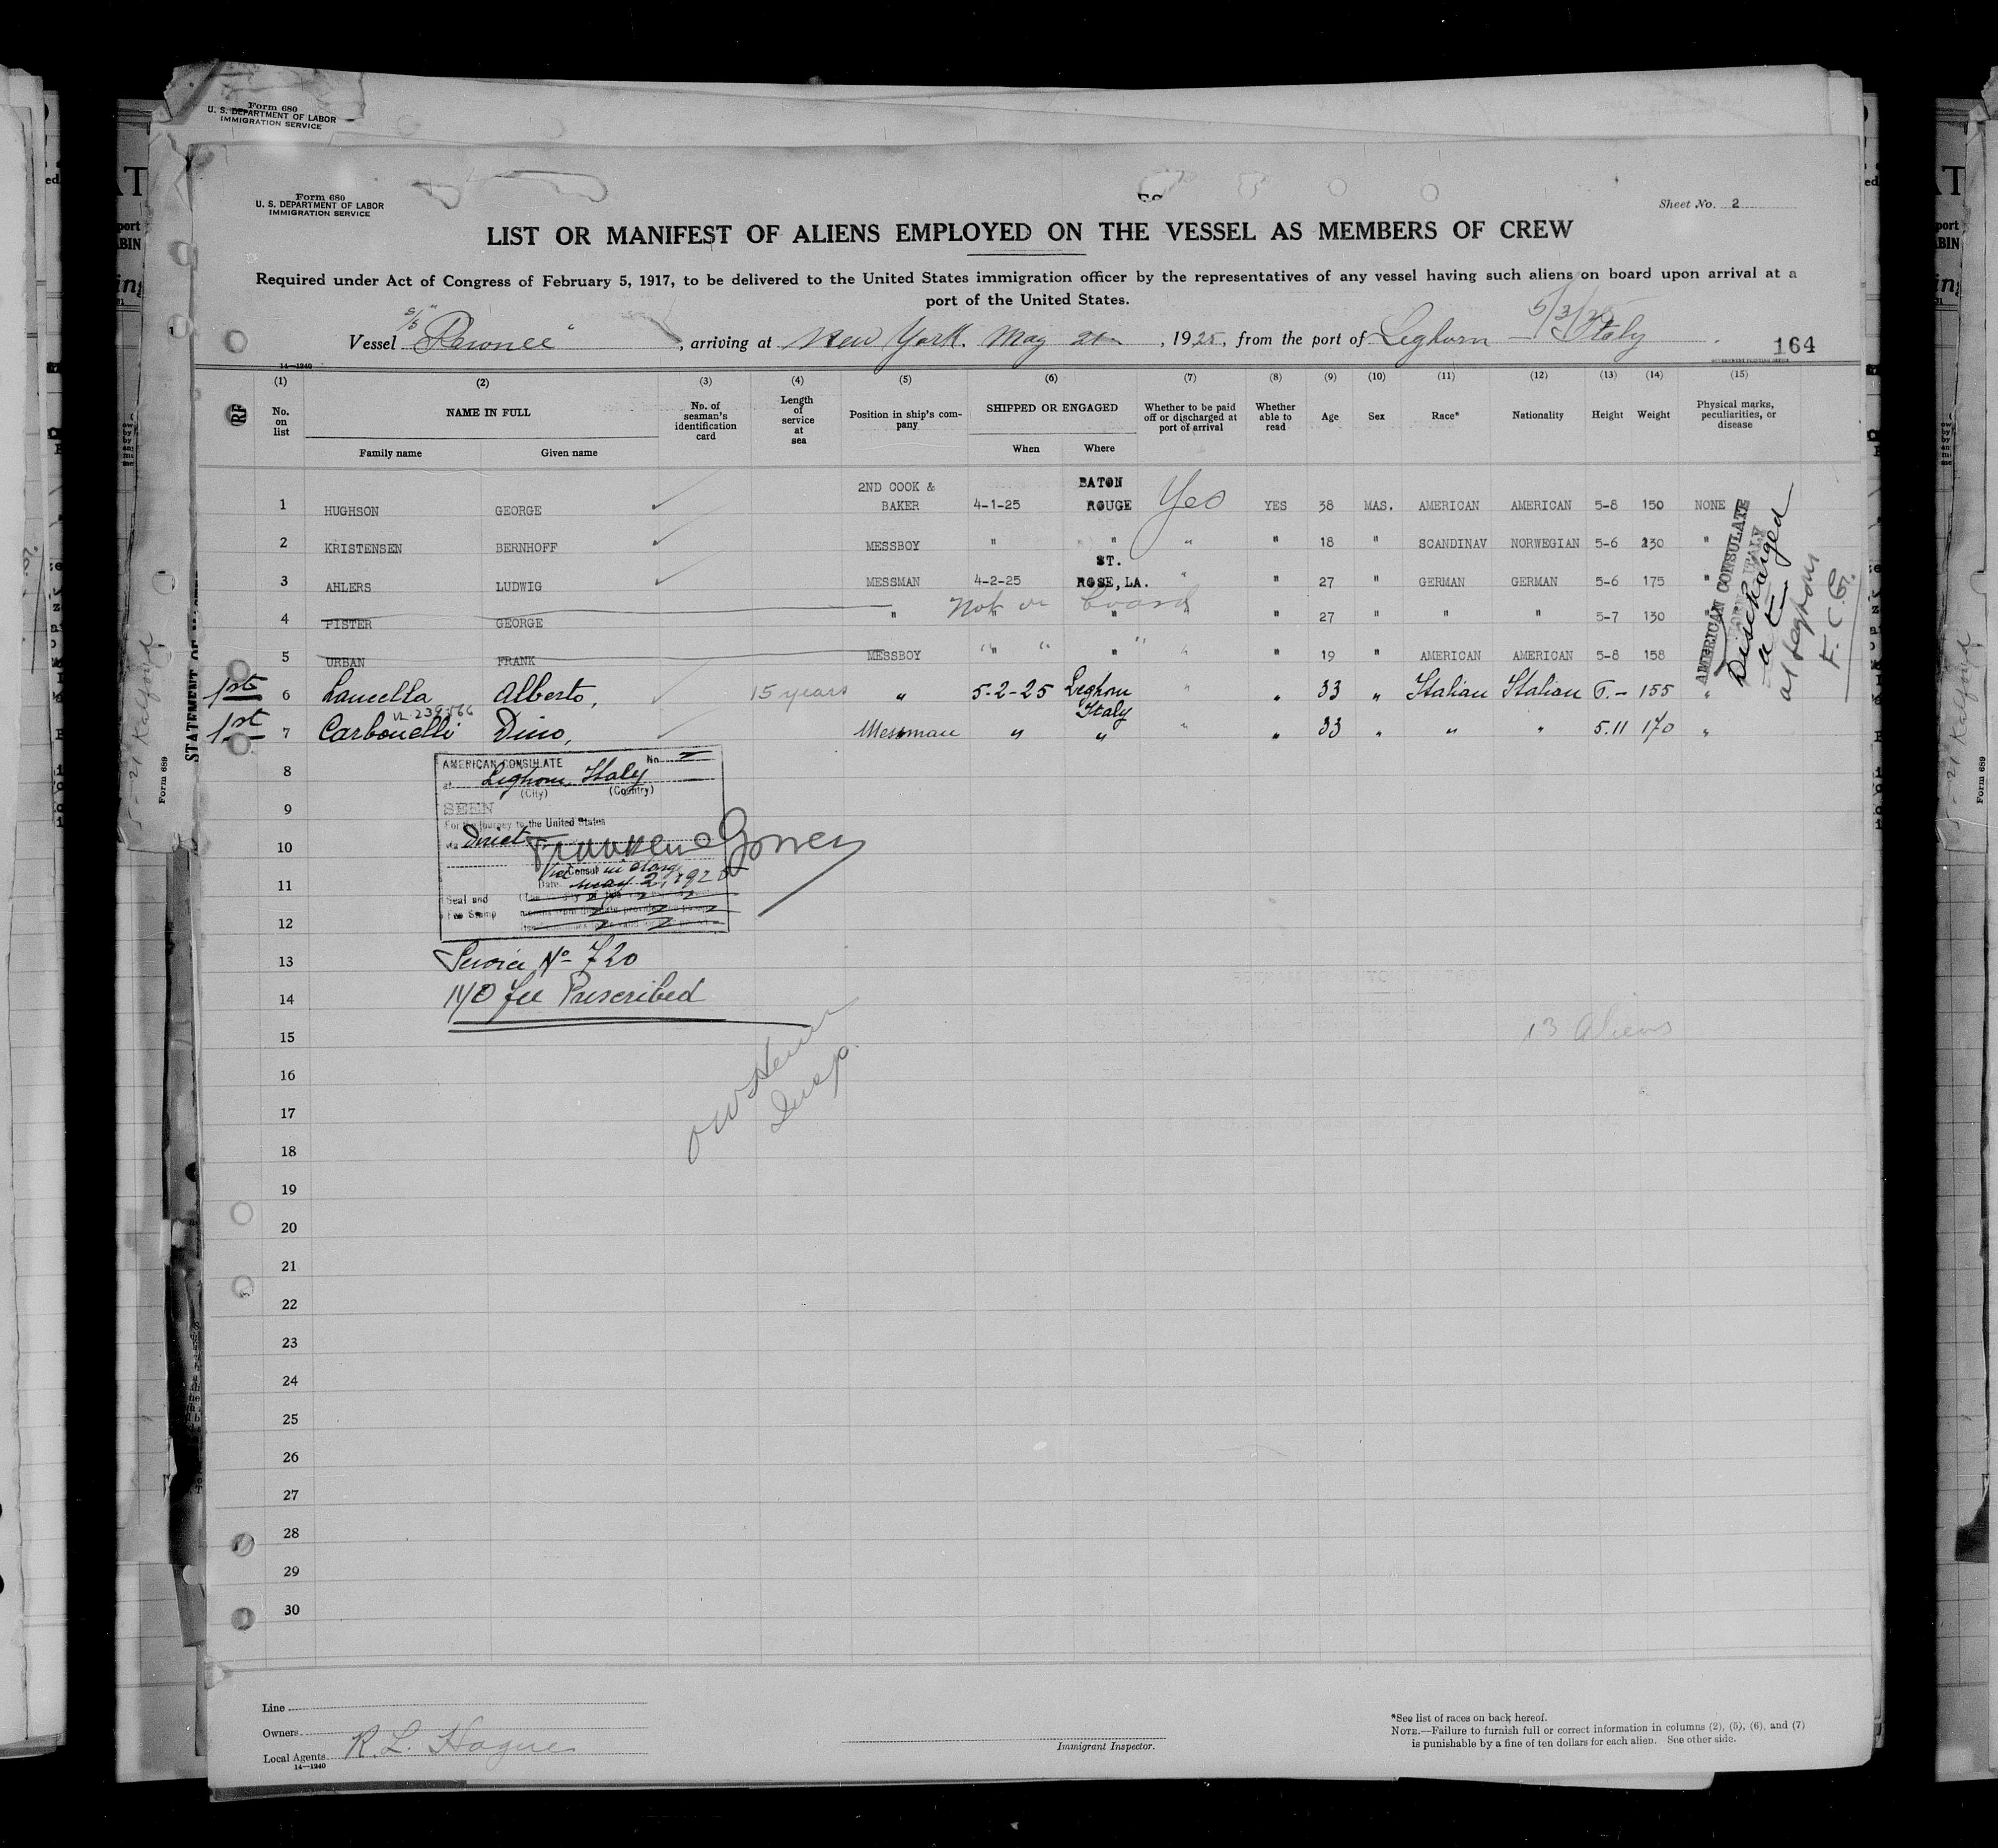 Form 680
U. S. DEPARTMENT OF LABOR
IMMIGRATION SERVICE
Form 680
U. S. DEPARTMENT OF LABOR
IMMIGRATION SERVICE
Sheet No. 2
LIST OR MANIFEST OF ALIENS EMPLOYED ON THE VESSEL AS MEMBERS OF CREW
Required under Act of Congress of February 5, 1917, to be delivered to the United States immigration officer by the representatives of any vessel having such aliens on board upon arrival at a
port of the United States.
Vessel S/S "Pawnee", arriving at New York. May 21, 1925, from the port of Leghorn - Italy
164
14—1240
(1) (2) (3) (4) (5) (6) (7) (8) (9) (10) (11) (12) (13) (14) (15)
No. on list
NAME IN FULL
Family name Given name
No. of seaman's identification card
Length of service at sea
Position in ship's company
SHIPPED OR ENGAGED
When Where
Whether to be paid off or discharged at port of arrival
Whether able to read
Age
Sex
Race*
Nationality
Height
Weight
Physical marks, peculiarities, or disease
1 HUGHSON GEORGE 2ND COOK & BAKER 4-1-25 BATON ROUGE Yes YES 38 MAS. AMERICAN AMERICAN 5-8 150 NONE
2 KRISTENSEN BERNHOFF MESSBOY " " " " 18 " SCANDINAV NORWEGIAN 5-6 130 "
3 AHLERS LUDWIG MESSMAN 4-2-25 ST. ROSE, LA. " " 27 " GERMAN GERMAN 5-6 175 "
Not on board
4 PISTER GEORGE " " " " 27 " " " 5-7 130 "
5 URBAN FRANK MESSBOY " " " " 19 " AMERICAN AMERICAN 5-8 158
1st 6 Lamella Alberto, 15 years " 5-2-25 Leghorn Italy " " 33 " Italian Italian 6.- 155 "
1st 7 Carbonelli Dino, Messman " " " " 33 " " " 5.11 170 "
AMERICAN CONSULATE
Discharged
at
at Leghorn
F. C. G.
8
AMERICAN CONSULATE No
at Leghorn, Italy
(City) (Country)
9
SEEN
For the journey to the United States
10
via Direct
Consul
11
Date May 2, 1925
Seal and
Fee Stamp
12
13
Service No 720
14
No fee Prescribed
15
13 aliens
Insp.
16
17
18
19
20
21
22
23
24
25
26
27
28
29
30
Line
Owners
Local Agents R. L. Hague
14—1240
Immigrant Inspector.
*See list of races on back hereof.
NOTE.—Failure to furnish full or correct information in columns (2), (5), (6), and (7)
is punishable by a fine of ten dollars for each alien. See other side.
Form 689
Form 689